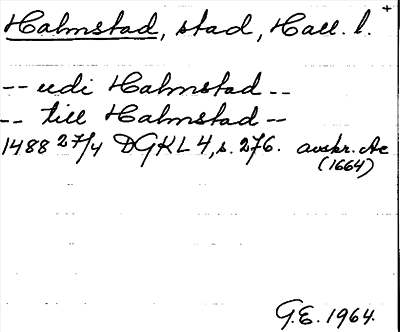 Halmstad, stad, Hall. l. +
-- udi Halmstad --
-- till Halmstad --
1488 27/4 DGKL 4, s. 276. avskr. Ae
(1664)
G.E. 1964.